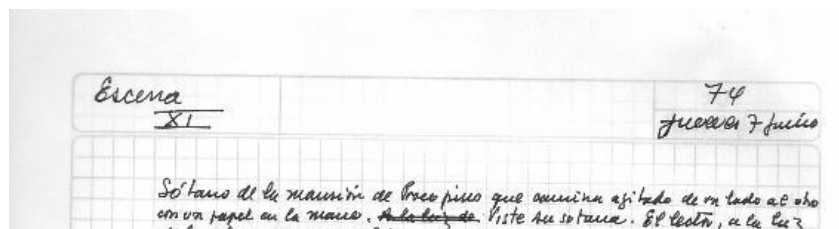 Escena
XI
74
jueves 7 junio
Sótano de la mansión de Procopius que camina agitado de un lado al otro
con un papel en la mano. A la luz de Viste su sotana. El lector, a la luz